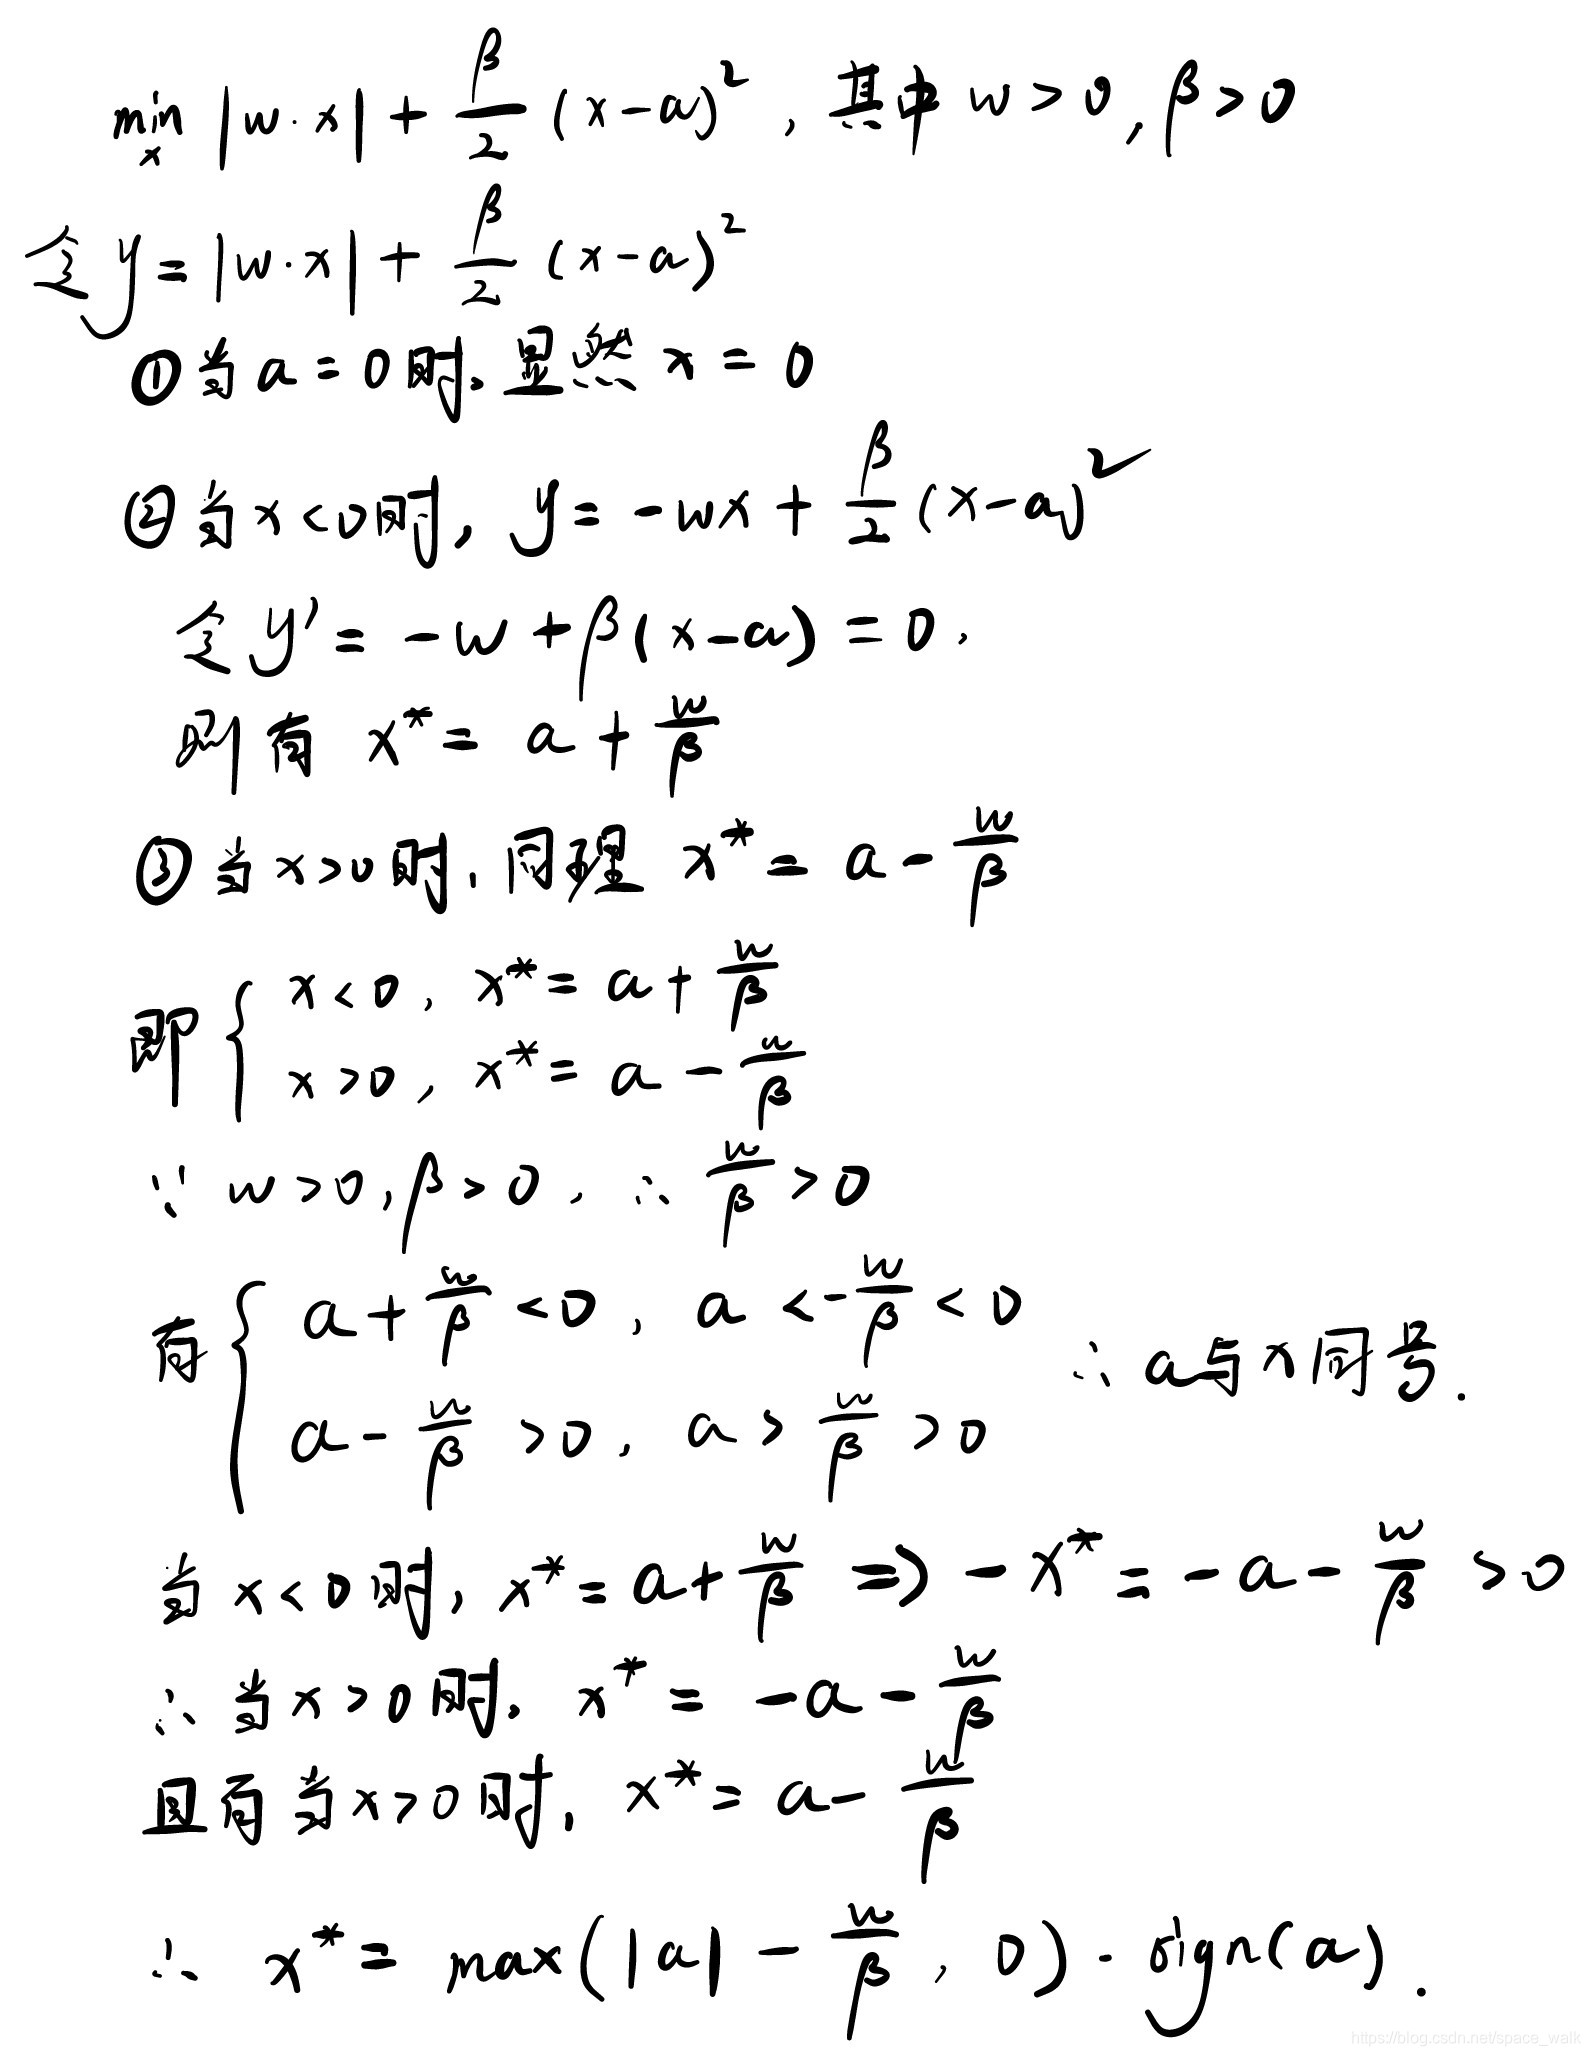 min |w·x| + β/2 (x-a)², 其中 w>0, β>0
x
令 y = |w·x| + β/2 (x-a)²
①当 a=0时, 显然 x=0
②当 x<0时, y = -wx + β/2 (x-a)²
令 y' = -w + β(x-a) = 0,
则有 x* = a + w/β
③当 x>0时, 同理 x* = a - w/β
即 { x<0, x* = a + w/β
x>0, x* = a - w/β
∵ w>0, β>0, ∴ w/β > 0
有 { a + w/β <0, a < -w/β < 0
∴ a与x同号.
a - w/β >0, a > w/β > 0
当 x<0时, x* = a + w/β ⇒ -x* = -a - w/β > 0
∴ 当 x>0时, x* = -a - w/β
且有当 x>0时, x* = a - w/β
∴ x* = max(|a| - w/β, 0)·sign(a).
https://blog.csdn.net/space_walk